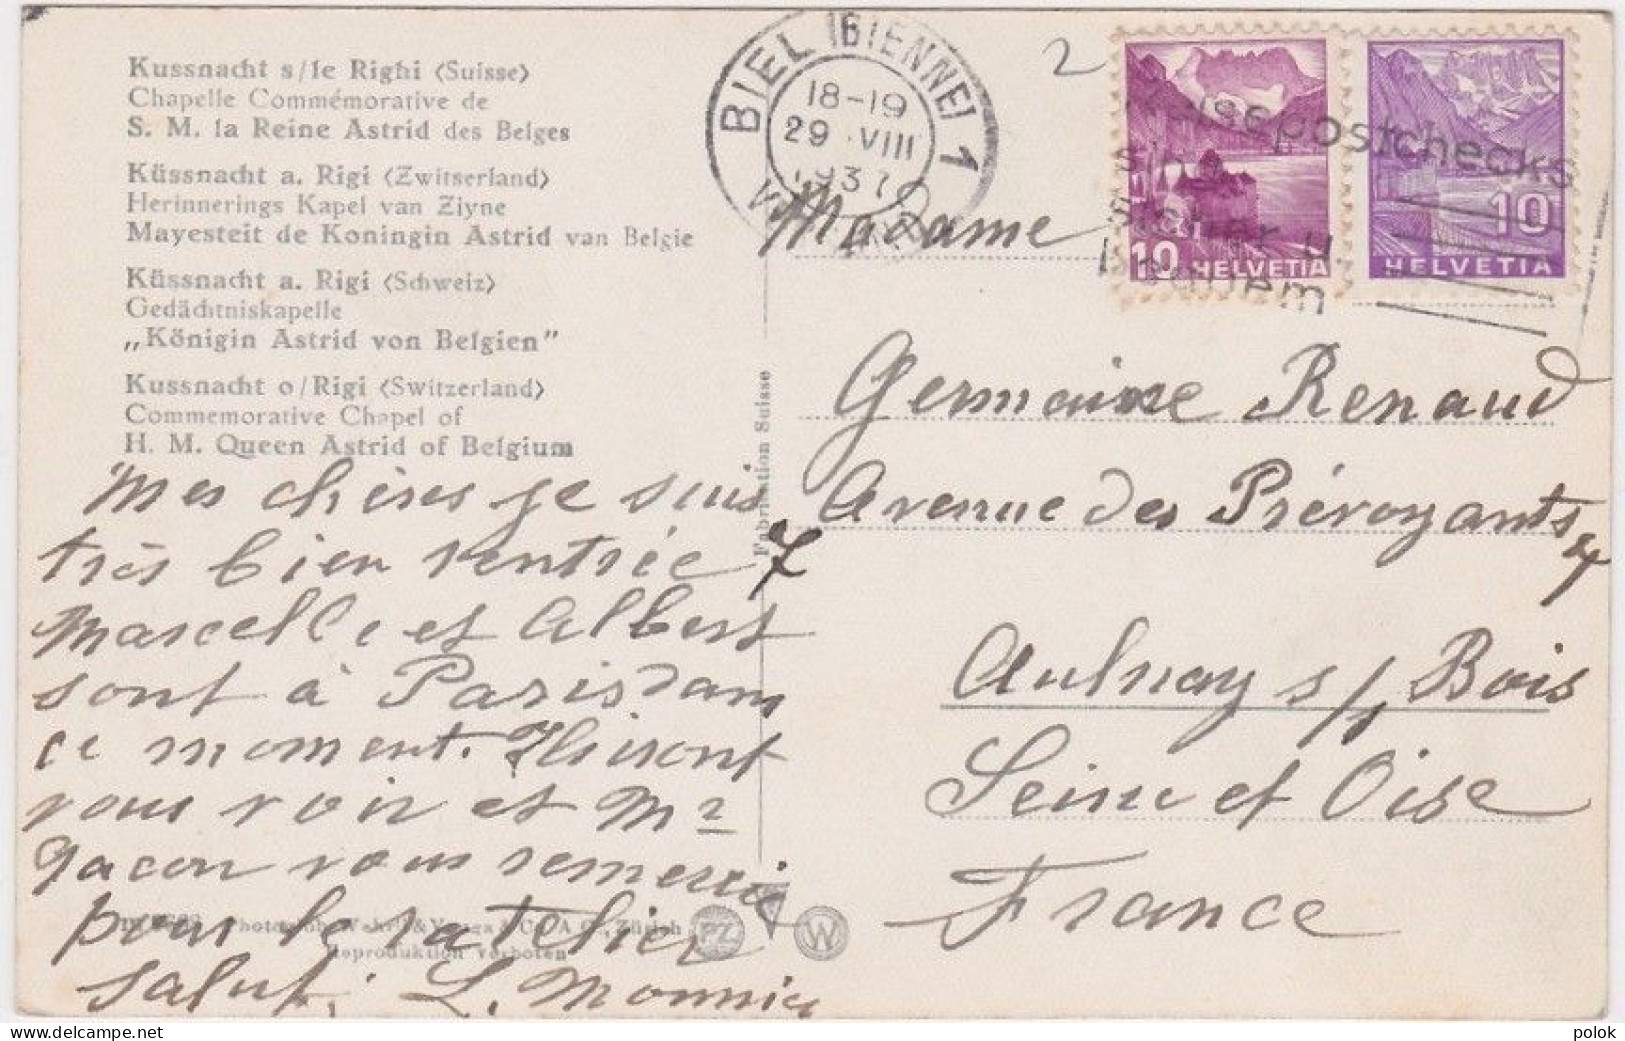 Kussnacht s/le Righi (Suisse)
Chapelle Commémorative de
S. M. la Reine Astrid des Belges
Küssnacht a. Rigi (Zwitserland)
Herinnerings Kapel van Ziyne
Mayesteit de Koningin Astrid van Belgie
Küssnacht a. Rigi (Schweiz)
Gedächtniskapelle
„Königin Astrid von Belgien"
Kussnacht o/Rigi (Switzerland)
Commemorative Chapel of
H. M. Queen Astrid of Belgium
Mes chères je suis
très bien rentrée
Marcelle et Albert
sont à Paris dans
ce moment. Ils iront
vous voir et Mr
Jacon vous remercie
pour le atelier
salut. L. Monnier
Photogr. Wehrli & Vouga & Co. A.G., Zürich
Reproduktion verboten
PZ
W
Fabrication Suisse
BIEL (BIENNE) 1
18-19
29.VIII
1937
2
10 HELVETIA
10
HELVETIA
Reisepostchecks
sind
sicher u.
bequem
Madame
Germaine Renaud
7 Avenue des Prévoyants 7
Aulnay s/s Bois
Seine et Oise
France
polok